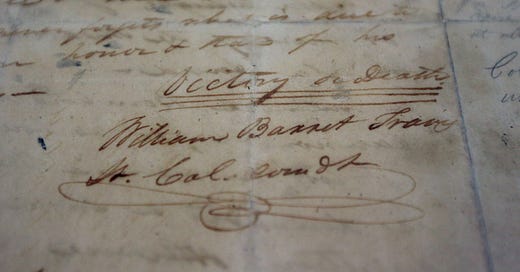 never forgets what is due to
own honor & that of his
Victory or Death
William Barret Travis
Lt. Col. comdt